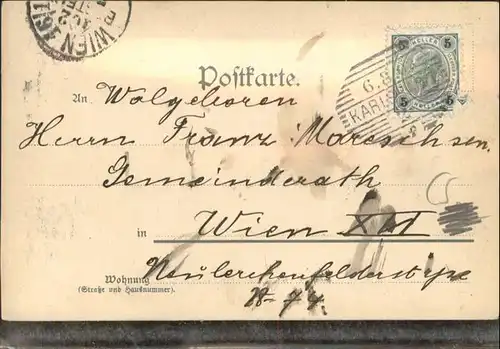 WIEN 16/1
5 HELLER 5
6.8
KARLS
5 HELLER 5
Postkarte.
An Wolgeboren
Herrn Franz Mareschsen.
Gemeinderath
in Wien XVI
Wohnung
(Straße und Hausnummer).
Neulerchenfelderstrße